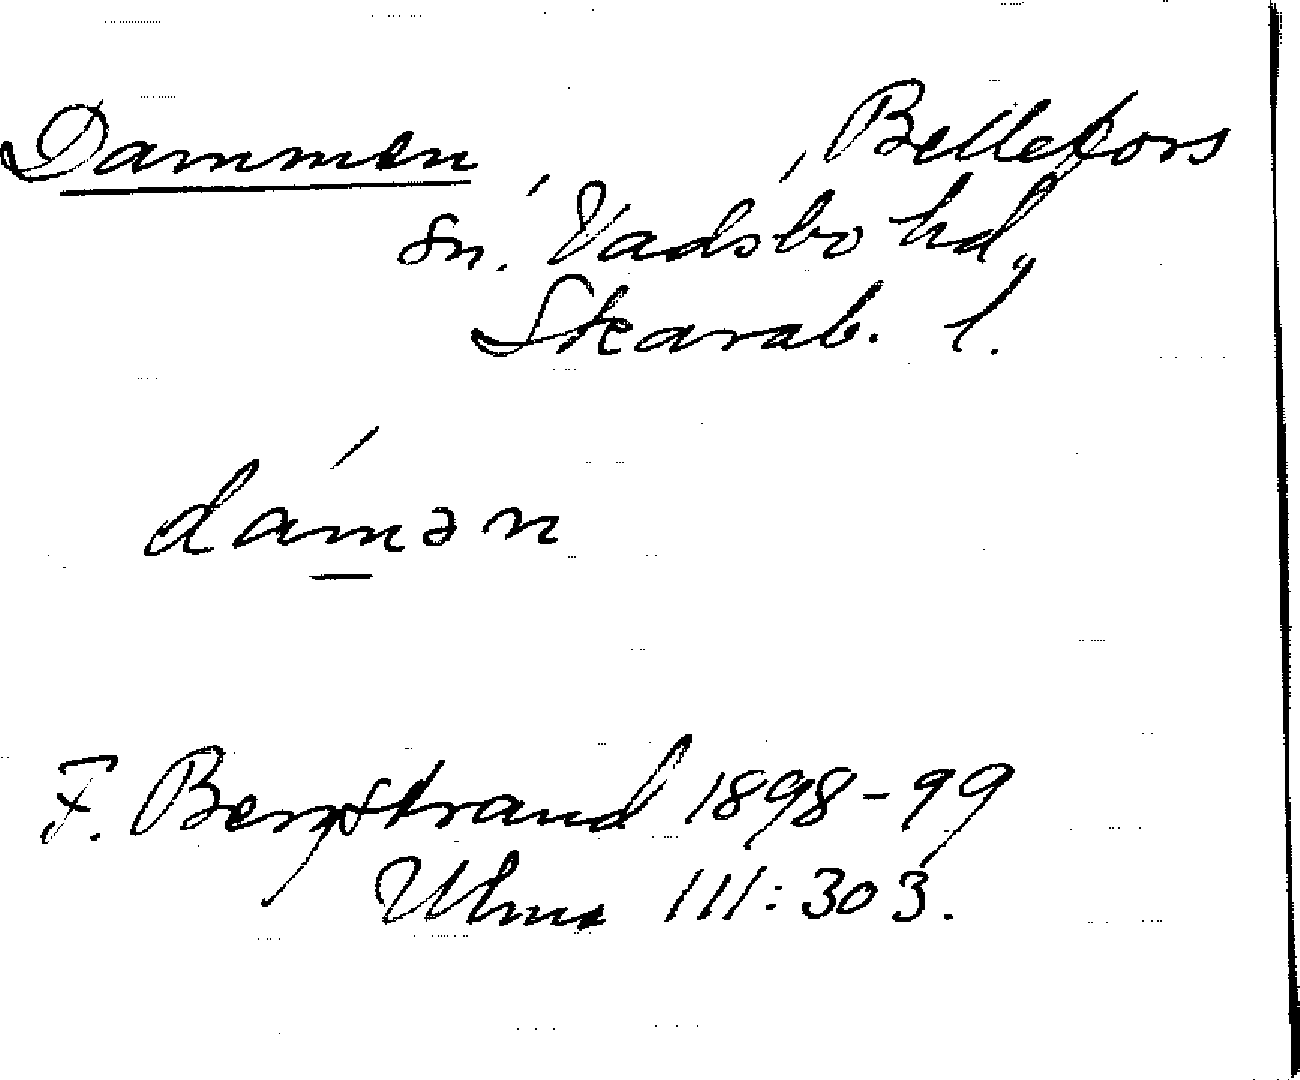 Dammen, Bellefors
sn. Vadsbo hd,
Skarab. l.
damən
F. Bergstrand 1898-99
Ulma 111:303.